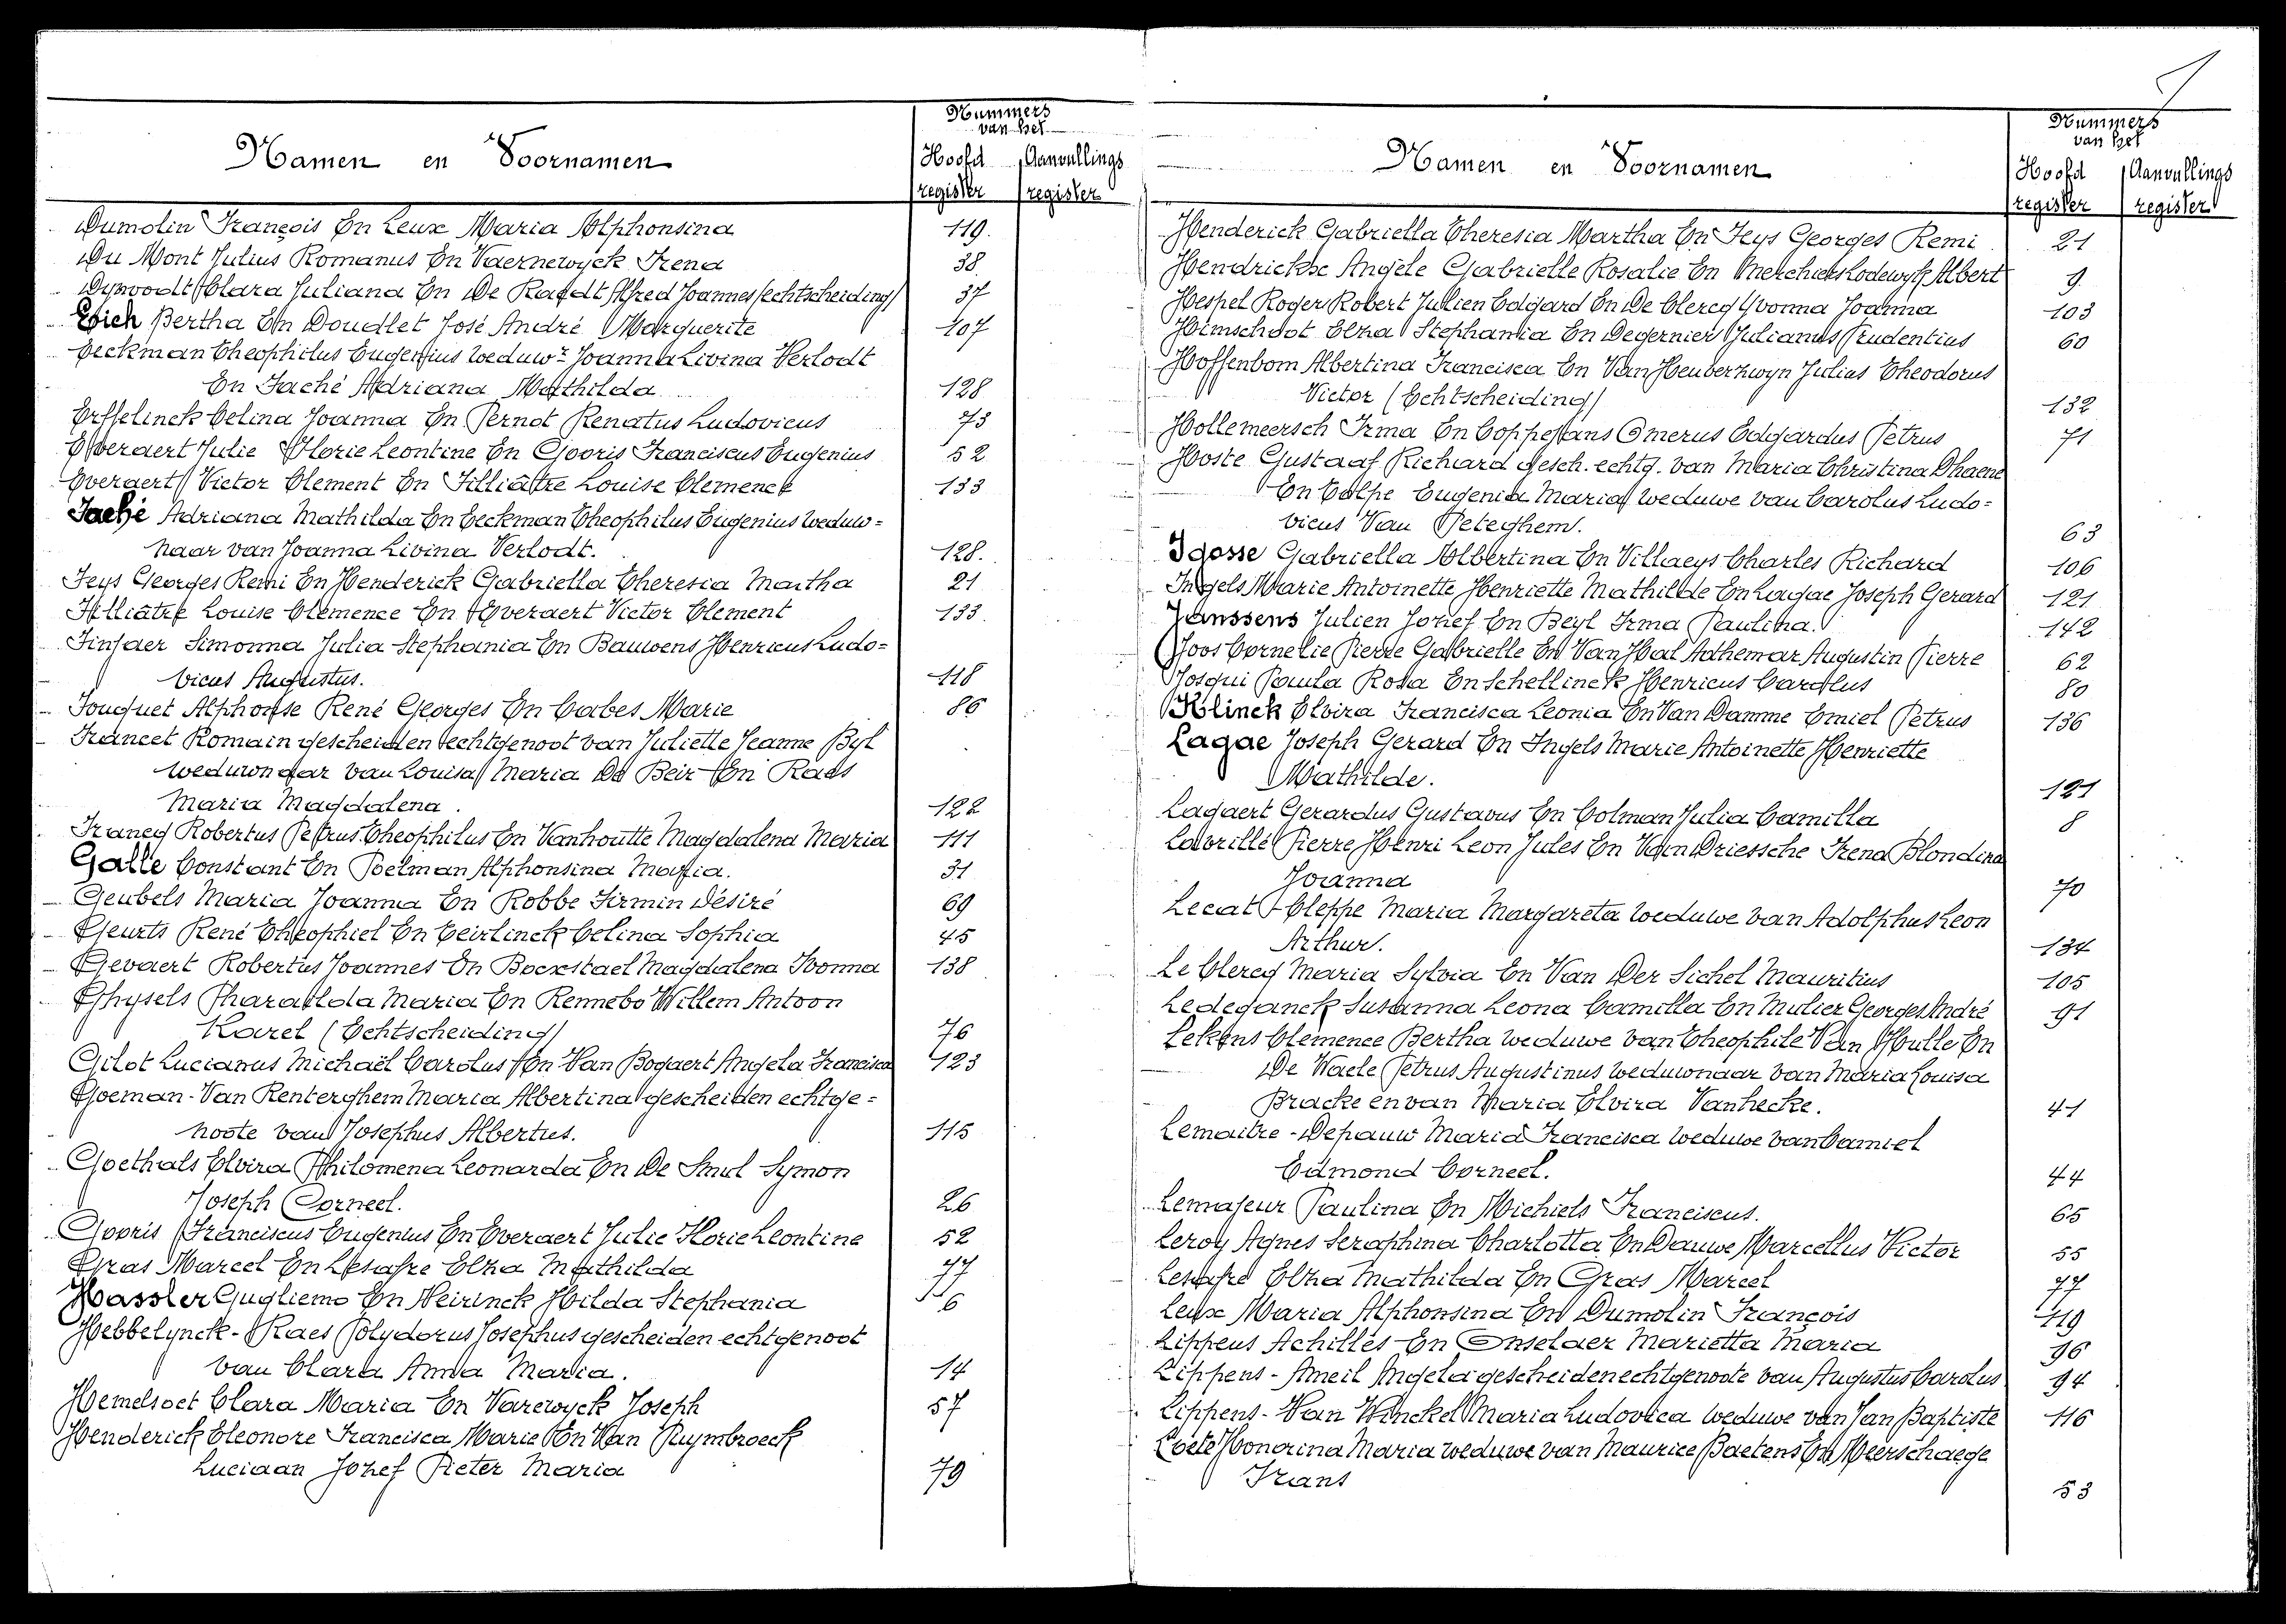 Nummers
van het
Namen en Voornamen
Hoofd Aanvullings
register register
Dumolin François En Leux Maria Alphonsina 119.
Du Mont Julius Romanus En Vaernewyck Irena 38
Dynvoodt Clara Juliana En De Raedt Alfred Joannes (echtscheiding) 37
Bertha En Doudlet José André Marguerite 107
Eeckman Theophilus Eugenius weduwr Joanna Livina Verlodt
En Faché Adriana Mathilda 128
Erffelinck Celina Joanna En Pernot Renatus Ludovicus 73
Everaert Julie Florie Leontine En Gooris Franciscus Eugenius 52
Everaert Victor Clement En Filliâtre Louise Clemence 133
Faché Adriana Mathilda En Eeckman Theophilus Eugenius weduw=
naar van Joanna Livina Verlodt. 128.
Feys Georges Remi En Henderick Gabriella Theresia Martha 21
Filliâtre Louise Clemence En Everaert Victor Clement 133.
Finfaer Simonna Julia Stephania En Bauwens Henricus Ludo=
vicus Augustus. 118
Fouquet Alphonse René Georges En Cabes Marie 86
Francet Romain gescheiden echtgenoot van Juliette Jeanne Byl
weduwnaar van Louisa Maria De Beir En Raes
Maria Magdalena. 122
Francq Robertus Petrus Theophilus En Vanhoutte Magdalena Maria 111
Galle Constant En Poelman Alphonsina Maria. 31
Geubels Maria Joanna En Robbe Firmin Désiré 69
Geurts René Theophiel En Ceirlinck Celina Sophia 45
Gevaert Robertus Joannes En Bocxstael Magdalena Ivonna 138
Ghysels Pharaïlda Maria En Rennebo Willem Antoon
Karel (Echtscheiding) 76
Gilot Lucianus Michaël Carolus En Van Bogaert Angela Francisca 123
Goeman-Van Renterghem Maria Albertina gescheiden echtge=
noote van Josephus Albertus. 115
Goethals Elvira Philomena Leonarda En De Smul Symon
Joseph Corneel. 26
Gooris Franciscus Eugenius En Everaert Julie Florie Leontine 52
Gras Marcel En Lesaffre Elza Mathilda 77
Hassler Gugliemo En Neirinck Hilda Stephania 6
Hebbelynck-Raes Polydorus Josephus gescheiden echtgenoot
van Clara Anna Maria. 14
Hemelsoet Clara Maria En Varewyck Joseph 57
Henderick Eleonore Francisca Marie En Van Ruymbroeck
Luciaan Jozef Pieter Maria 79
Nummers
van het
Namen en Voornamen
Hoofd Aanvullings
register register
Henderick Gabriella Theresia Martha En Feys Georges Remi 21
Hendrickx Angèle Gabrielle Rosalie En Lodewyk Albert 9
Hespel Roger Robert Julien Edgard En De Clercq Yvonna Joanna 103
Himschoot Elza Stephania En Degernier Julianus Prudentius 60
Hoffenbom Albertina Francisca En Van Heuverzwyn Julius Theodorus
Victor (Echtscheiding) 132
Hollemeersch Irma En Coppejans Omerus Edgardus Petrus 71
Hoste Gustaaf Richard gesch. echtg. van Maria Christina Dhaene
En Colpe Eugenia Maria weduwe van Carolus Ludo=
vicus Van Peteghem. 63
Idosse Gabriella Albertina En Villaeys Charles Richard 106
Ingels Marie Antoinette Henriette Mathilde En Lagae Joseph Gerard 121
Janssens Julien Jozef En Beyl Irma Paulina. 142
Joos Cornelie Pierre Gabrielle En Van Hal Adhemar Augustin Pierre 62
Josqui Paula Rosa En Schellinck Henricus Carolus 80
Klinck Elvira Francisca Leonia En Van Damme Emiel Petrus 136
Lagae Joseph Gerard En Ingels Marie Antoinette Henriette
Mathilde. 121
Lagaert Gerardus Gustavus En Colman Julia Camilla 8
Lavrillé Pierre Henri Leon Jules En Van Driessche Irena Blondina
Joanna 70
Lecat-Cleppe Maria Margareta weduwe van Adolphus Leon
Arthur. 134
Le Clercq Maria Sylvia En Van Der Sichel Mauritius 105
Ledeganck Susanna Leona Camilla En Mulier Georges André 91
Lekens Clemence Bertha weduwe van Theophile Van Hulle En
De Waele Petrus Augustinus weduwnaar van Maria Louisa
Bracke en van Maria Elvira Vanhecke. 41
Lemaitre-Depauw Maria Francisca weduwe van Camiel
Edmond Corneel. 44
Lemajeur Paulina En Michiels Franciscus. 65
Leroy Agnes Seraphina Charlotta En Dauwe Marcellus Victor 55
Lesaffre Elza Mathilda En Gras Marcel 77
Leux Maria Alphonsina En Dumolin François 119
Lippens Achilles En Onselaer Marietta Maria 96
Lippens-Ameil Angela gescheiden echtgenoote van Augustus Carolus 94
Lippens-Van Winckel Maria Ludovica weduwe van Jan Baptiste 116
Loete Honorina Maria weduwe van Maurice Baetens En Meerschaege
Frans 53